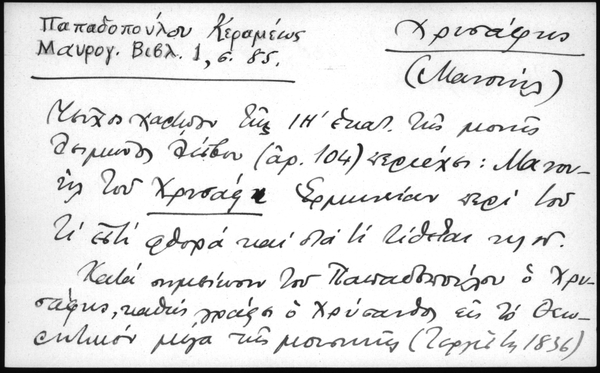 Παπαδοπούλου Κεραμέως
Μαυρογ. Βιβλ. 1, σ. 85.
Χρυσάφης
(Μανουήλ)
χαρτῷον τῆς ΙΗ' ἑκατ. τῆς μονῆς
Λειμῶνος Λέσβου (ἀρ. 104) περιέχει: Μανου-
ὴλ τοῦ Χρυσάφη Ἑρμηνείαν περὶ τοῦ
τί ἐστί φθορά καὶ διὰ τί τίθεται κλπ.
Κατά σημείωσιν τοῦ Παπαδοπούλου ὁ Χρυ-
σάφης, καθὼς γράφει ὁ Χρύσανθος εἰς τὸ Θεω-
ρητικόν μέγα τῆς μουσικῆς (Τεργέστη 1836)